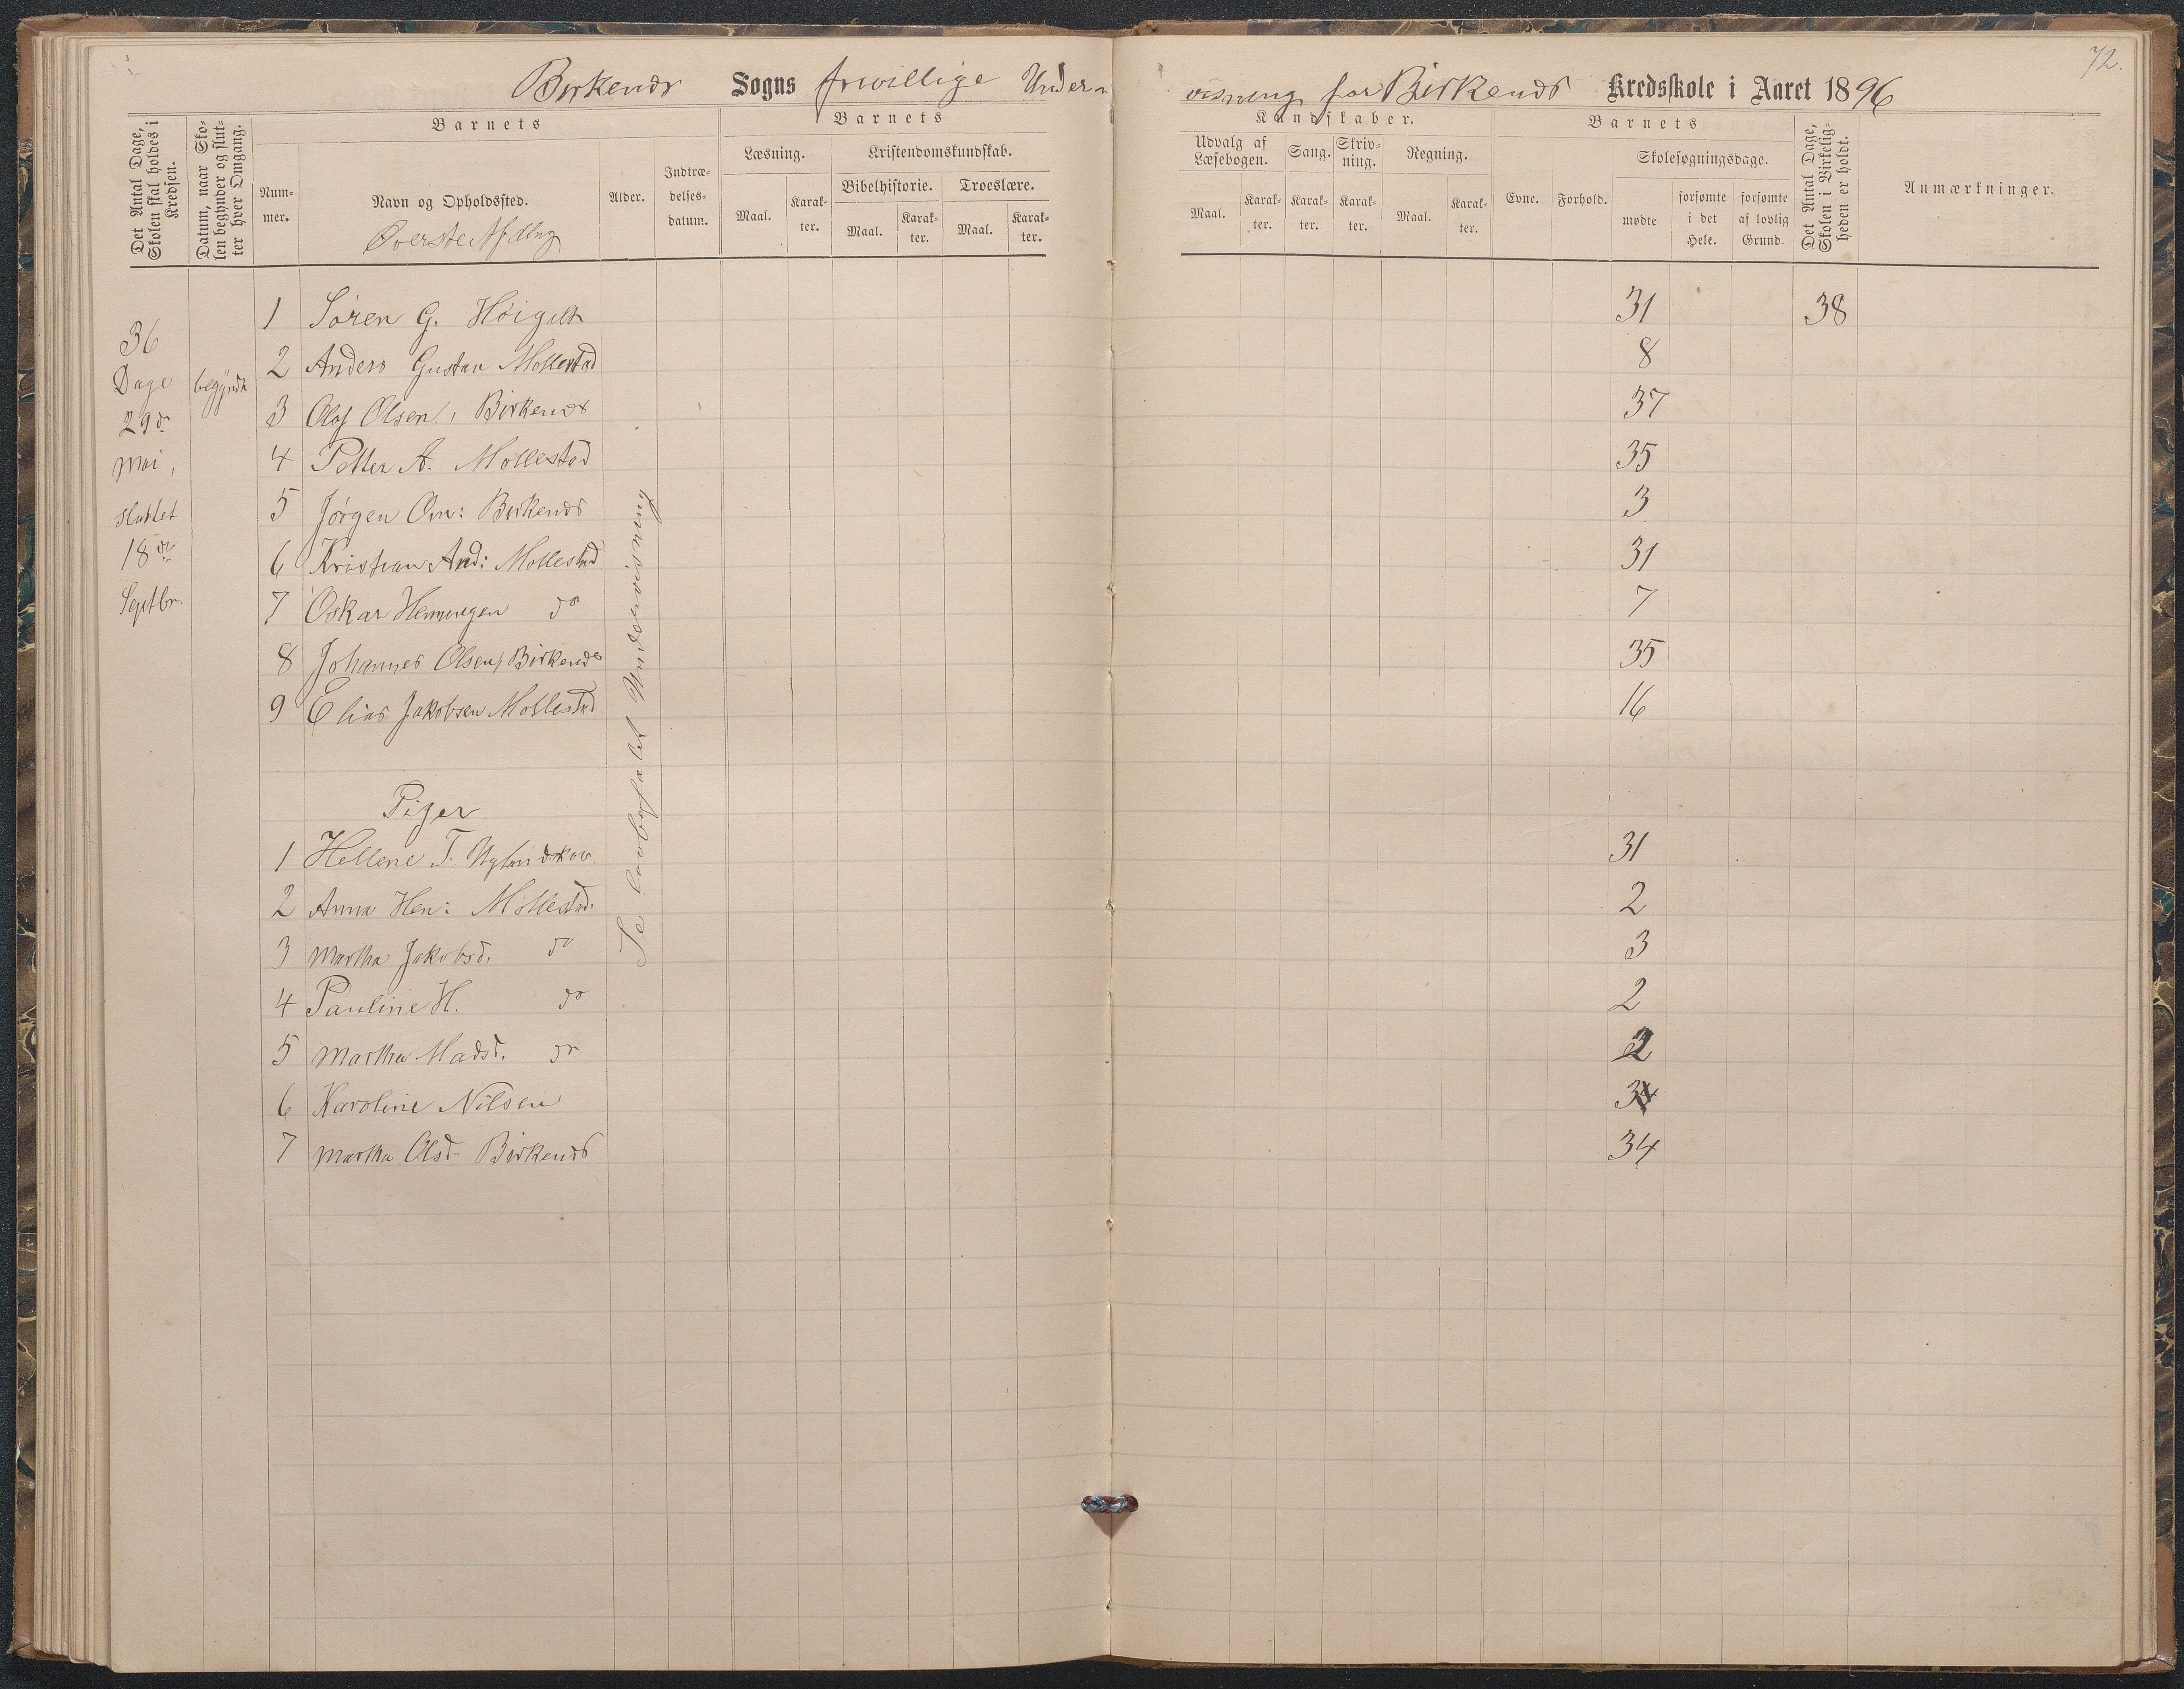 72.
Birkenæs Sogns frivillige Undervisning for Birkenæs Kredsskole i Aaret 1896
Det Antal Dage, Skolen skal holdes i Kredsen.
Datum, naar Skolen begynder og slutter hver Omgang.
Barnets
Nummer.
Navn og Opholdssted.
Øverste Afdlng
Alder.
Indtrædelsesdatum.
Barnets
Læsning.
Maal.
Karakter.
Kristendomskundskab.
Bibelhistorie.
Maal.
Karakter.
Troeslære.
Maal.
Karakter.
Kundskaber.
Udvalg af Læsebogen.
Maal.
Karakter.
Sang.
Karakter.
Skrivning.
Karakter.
Regning.
Maal.
Karakter.
Barnets
Evne.
Forhold.
Skolesøgningsdage.
mødte
forsømte i det Hele.
forsømte af lovlig Grund.
Det Antal Dage, Skolen i Virkeligheden er holdt.
Anmærkninger.
36
Dage begyndt
29de
Mai,
sluttet
18de
Septbr.
1 Søren G. Höigilt 31 38
2 Anders Gustav Mollestad 8
3 Olaf Olsen, Birkenæs 37
4 Petter A. Mollestad 35
5 Jørgen Om: Birkenæs 3
6 Kristian And: Mollestad 31
7 Oskar Hemmingsen do 7
8 Johannes Olsen, Birkenæs 35
9 Elias Jakobsen Mollestad 16
Piger
1 Hellene T. Uglandskov 31
2 Anna Hen: Mollestad. 2
3 Martha Jakobsd. do 3
4 Pauline H. do 2
5 Martha Madsd. do 2
6 Karoline Nilsen 34
7 Martha Olsd Birkenæs 34
Se lovbefalet Undervisning